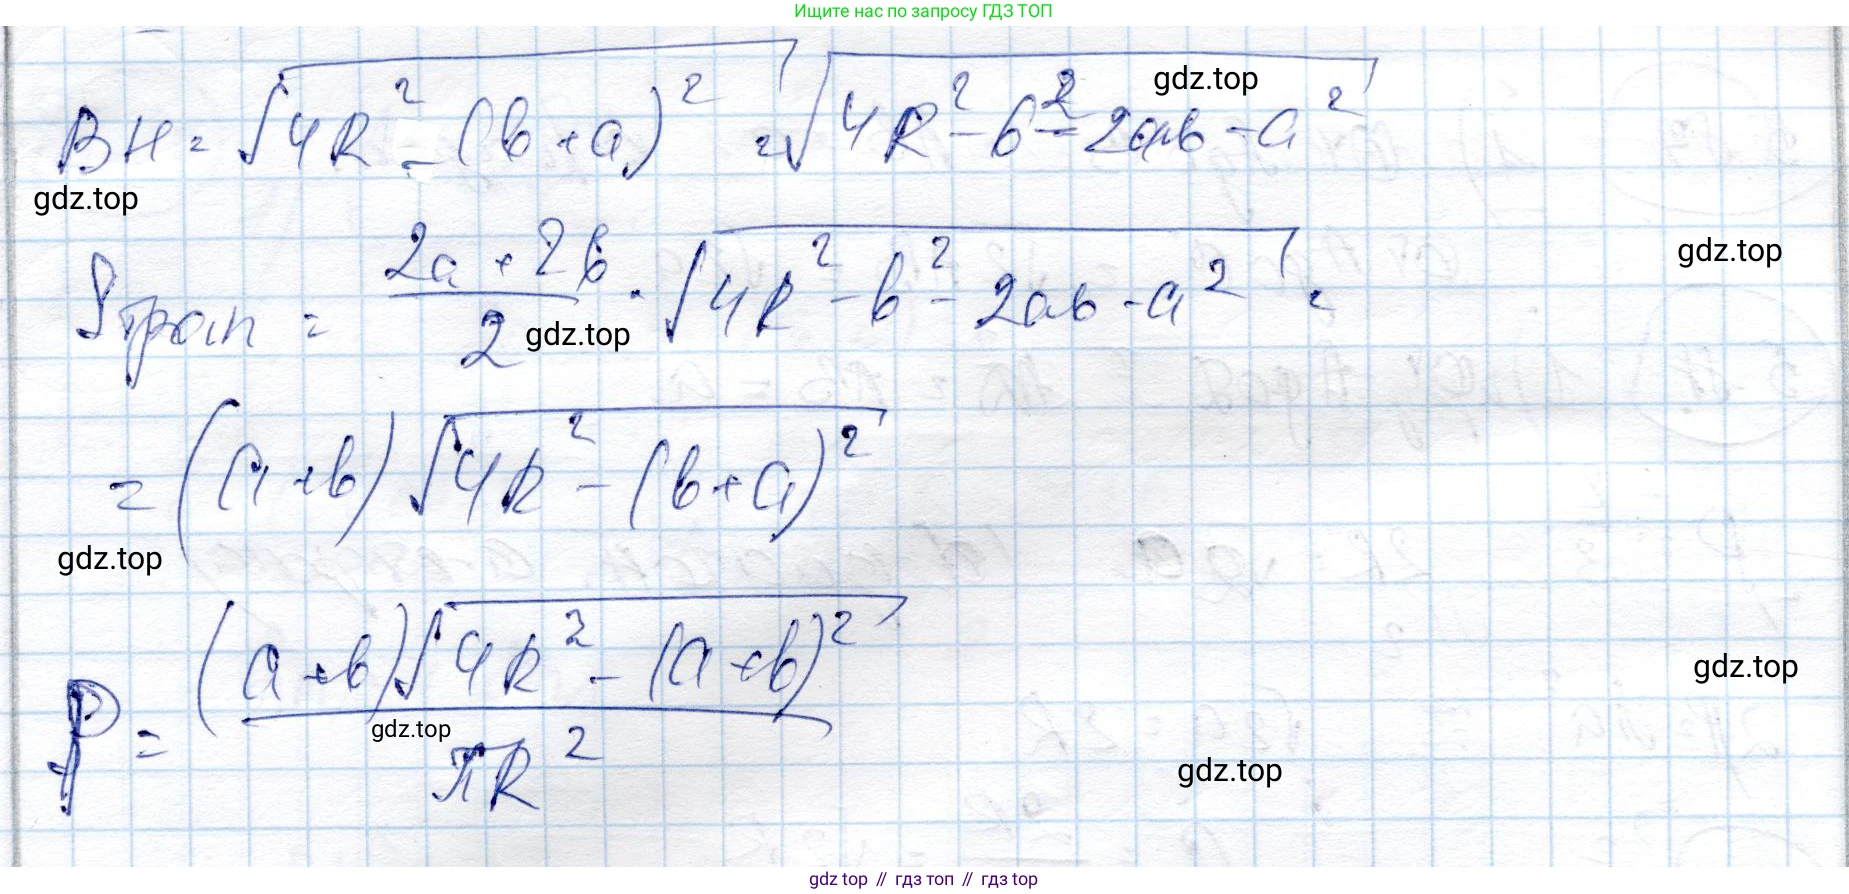 Ищите нас по запросу ГДЗ ТОП
BH = √(4R² - (b + a)²) = √(4R² - b² - 2ab - a²)
gdz.top
gdz.top
Sтрап = (2a + 2b)/2 · √(4R² - b² - 2ab - a²) =
gdz.top
gdz.top
= (a + b) √(4R² - (b + a)²)
gdz.top
P = ((a + b)√(4R² - (a + b)²))/(πR²)
gdz.top
gdz.top
gdz.top
gdz top // гдз топ // gdz top